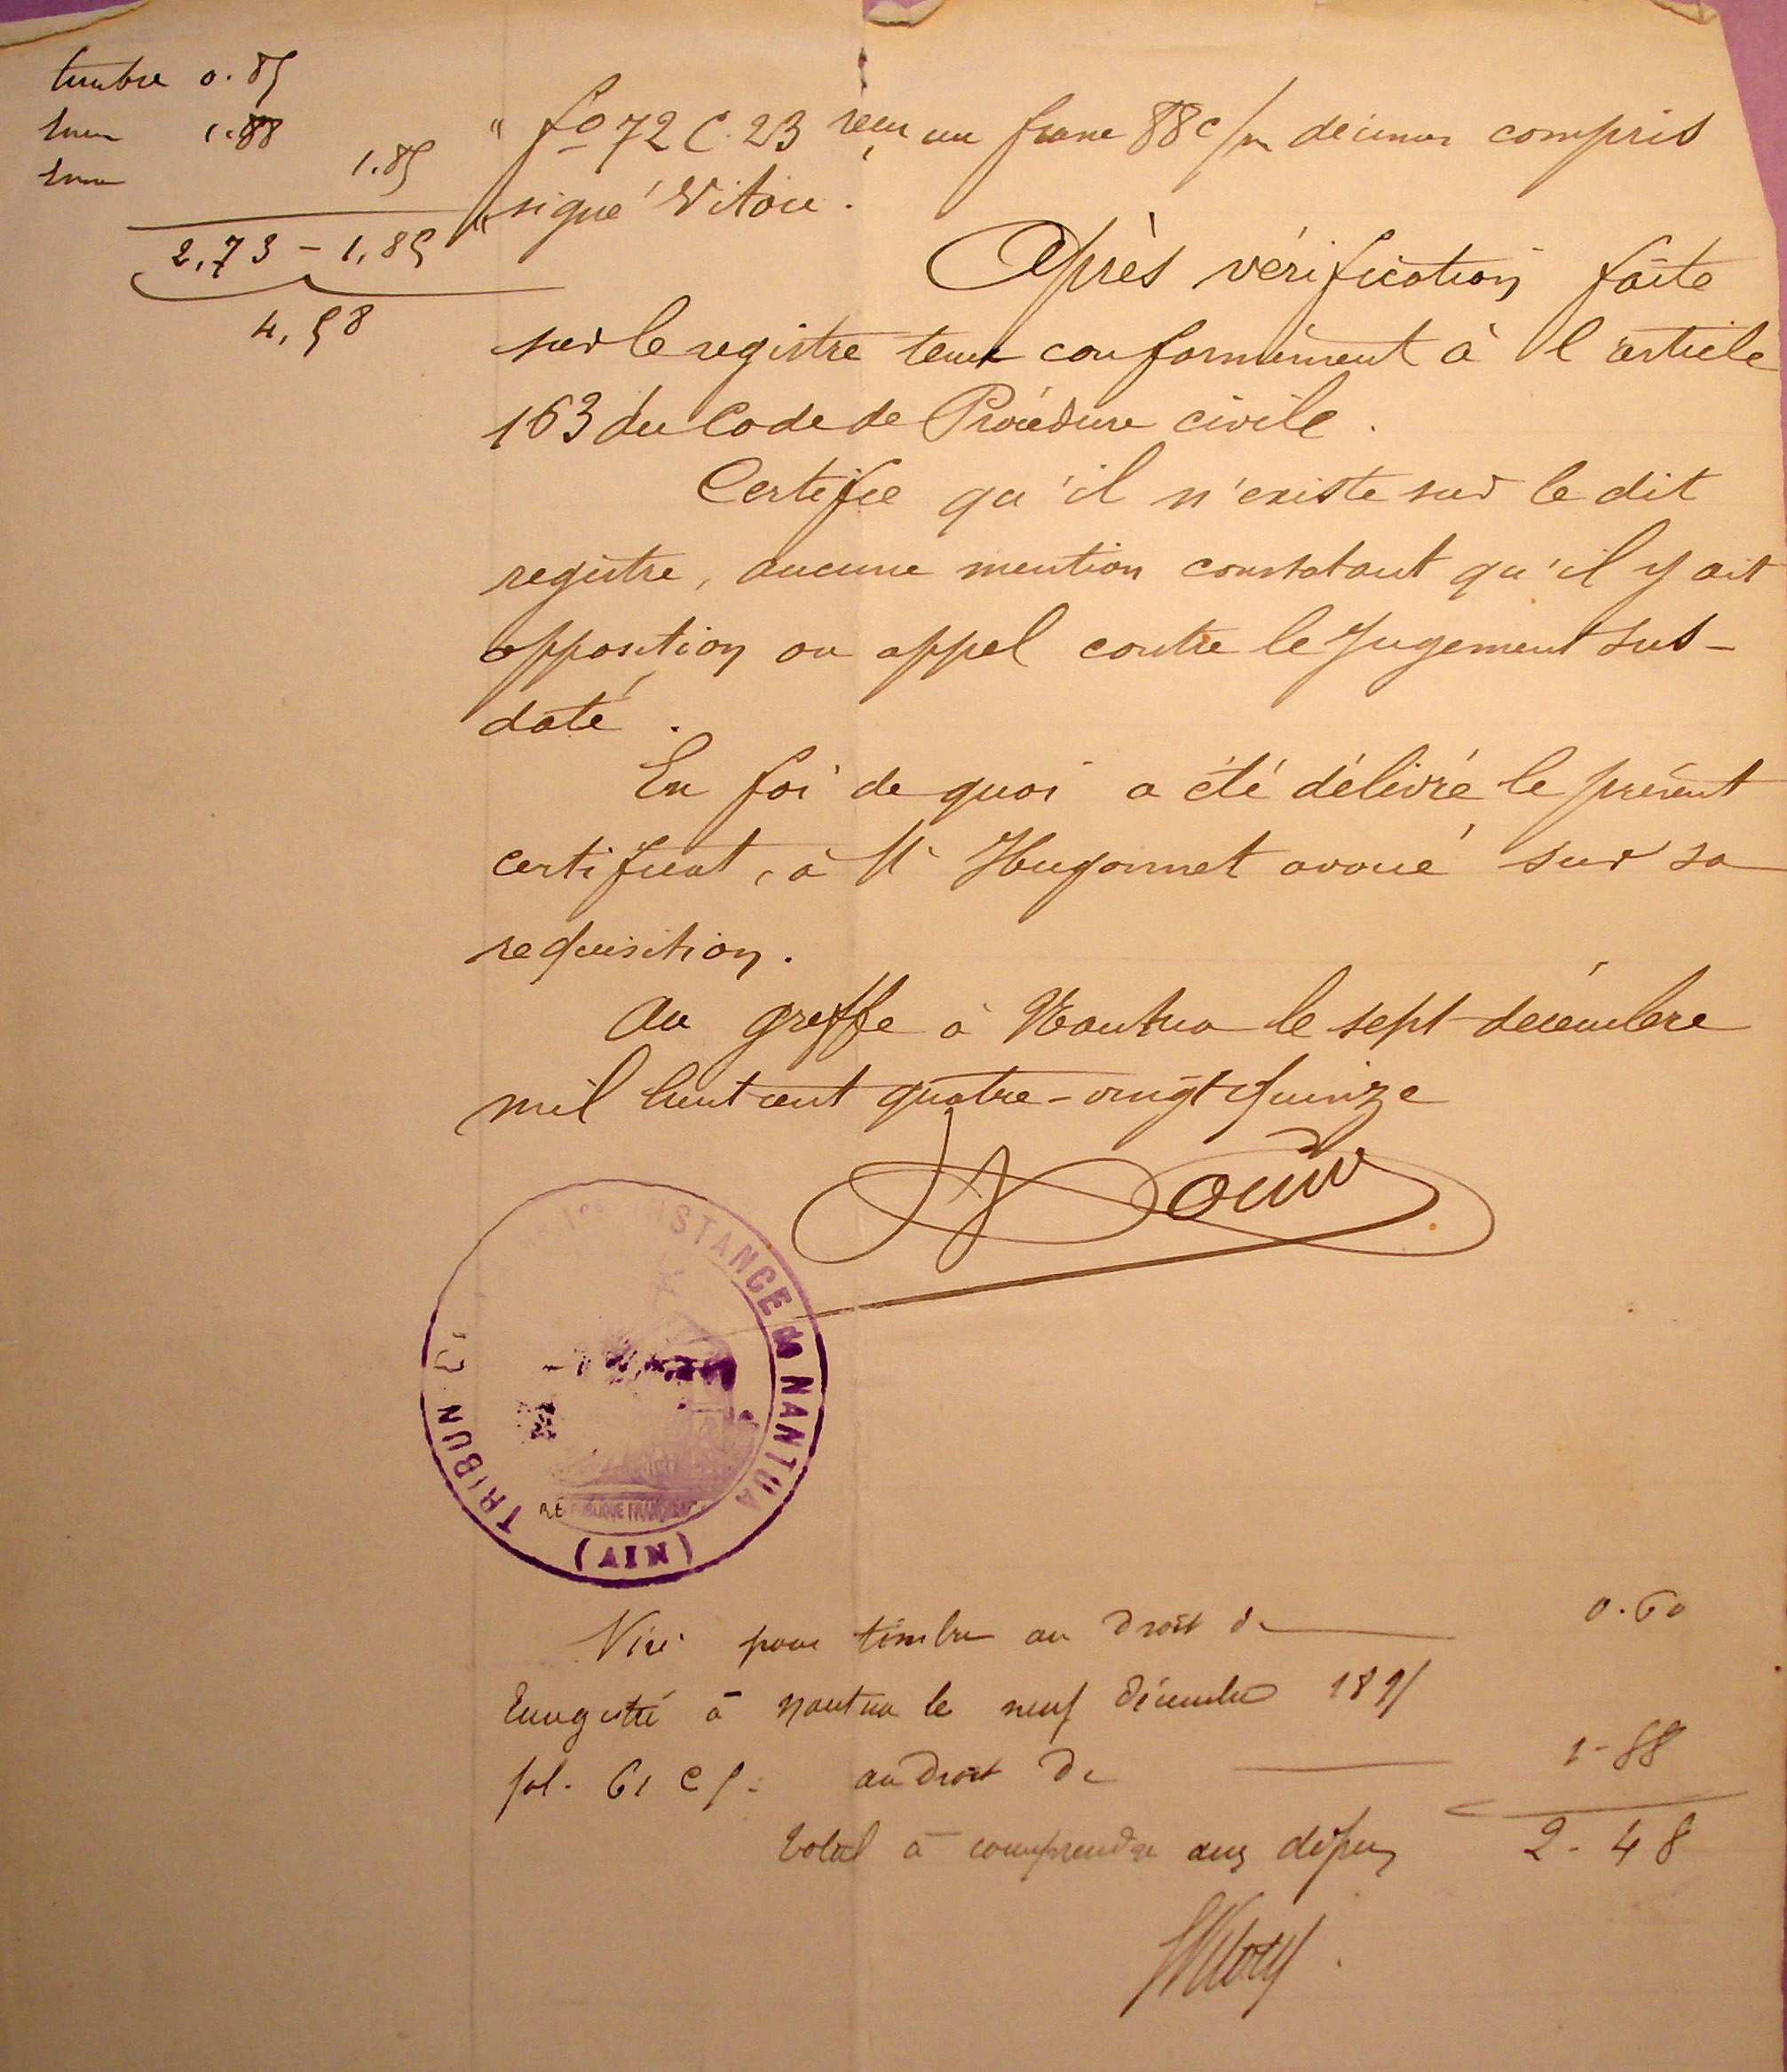 timbre 0.85
1.88
1.85
2,73 - 1,85
4,58
" fo 72 C. 23 reçu un franc 88 c/m décimes compris
" signé Vitou.
Après vérification faite
sur le registre tenu conformément à l'article
163 du Code de Procédure civile.
Certifie qu'il n'existe sur le dit
registre, aucune mention constatant qu'il y ait
opposition ou appel contre le Jugement sus-
daté.
En foi de quoi a été délivré le présent
certificat, à Me Hugonnet avoué sur sa
requisition.
Au greffe à Nantua le sept décembre
mil huit cent quatre-vingt quinze
TRIBUNAL INSTANCE de NANTUA
RÉPUBLIQUE FRANÇAISE
(AIN)
Visé pour timbre au droit de 0.60
Enregistré à Nantua le neuf décembre 1895
fol. 61 C 5. au droit de 1-88
total à comprendre aux dépens 2.48